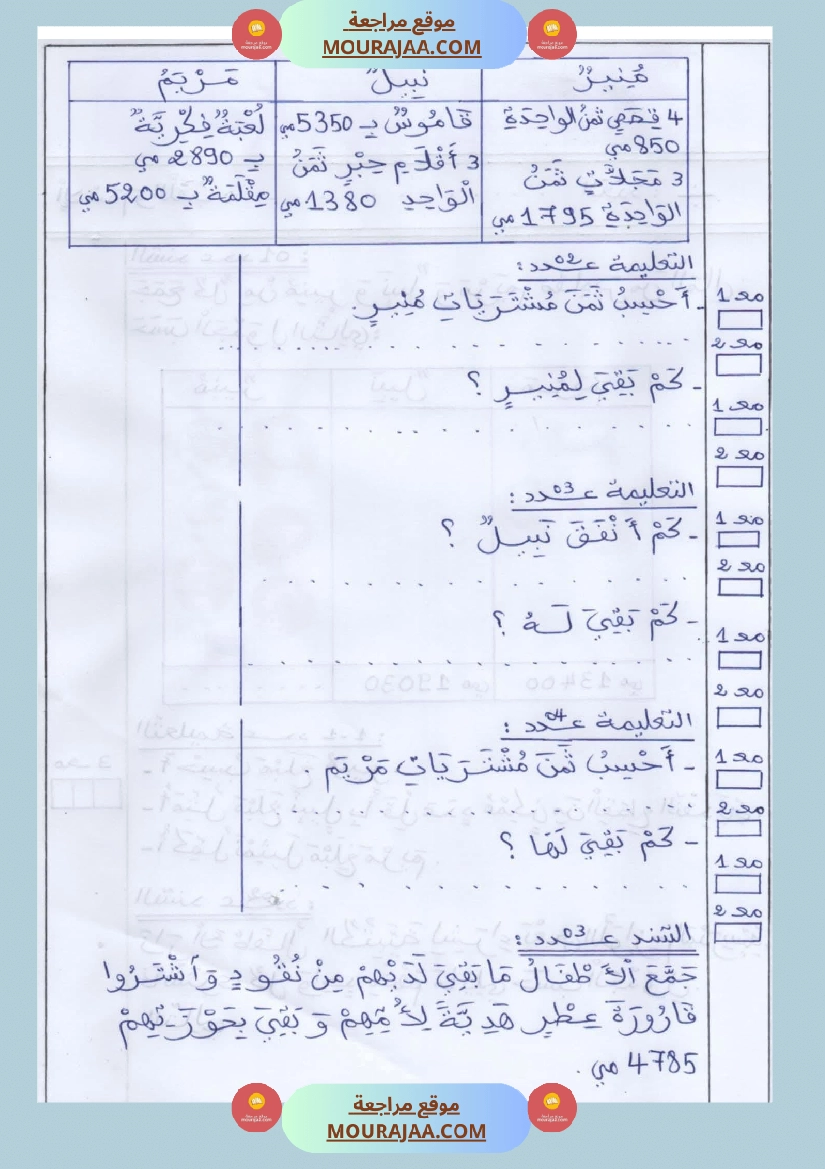 موقع مراجعة
MOURAJAA.COM
مُنِيرٌ
نَبِيلٌ
مَرْيَمُ
4 قِصَصٍ ثَمَنُ الوَاحِدَةِ
850 مي
3 مَجَلَّاتٍ ثَمَنُ
الوَاحِدَةِ 1795 مي
قَامُوسٌ بِـ 5350 مي
3 أَقْلَامِ حِبْرٍ ثَمَنُ
الْوَاحِدِ 1380 مي
لُعْبَةٌ فِكْرِيَّةٌ
بِـ 2890 مي
مِقْلَمَةٌ بِـ 5200 مي
التعليمة عـ02ـدد :
- أَحْسِبُ ثَمَنَ مُشْتَرَيَاتِ مُنِيرٍ.
- كَمْ بَقِيَ لِمُنِيرٍ ؟
التعليمة عـ03ـدد :
- كَمْ أَنْفَقَ نَبِيلٌ ؟
- كَمْ بَقِيَ لَهُ ؟
التعليمة عـ04ـدد :
- أَحْسِبُ ثَمَنَ مُشْتَرَيَاتِ مَرْيَمَ .
- كَمْ بَقِيَ لَهَا ؟
السّند عـ03ـدد :
جَمَّعَ الْأَطْفَالُ مَا بَقِيَ لَدَيْهِمْ مِنْ نُقُودٍ وَاشْتَرُوا
قَارُورَةَ عِطْرٍ هَدِيَّةً لِأُمِّهِمْ وَبَقِيَ بِحَوْزَتِهِمْ
4785 مي .
مع 1
مع 2
مع 1
مع 2
مع 1
مع 2
مع 1
مع 2
مع 1
مع 2
مع 1
مع 2
موقع مراجعة
MOURAJAA.COM